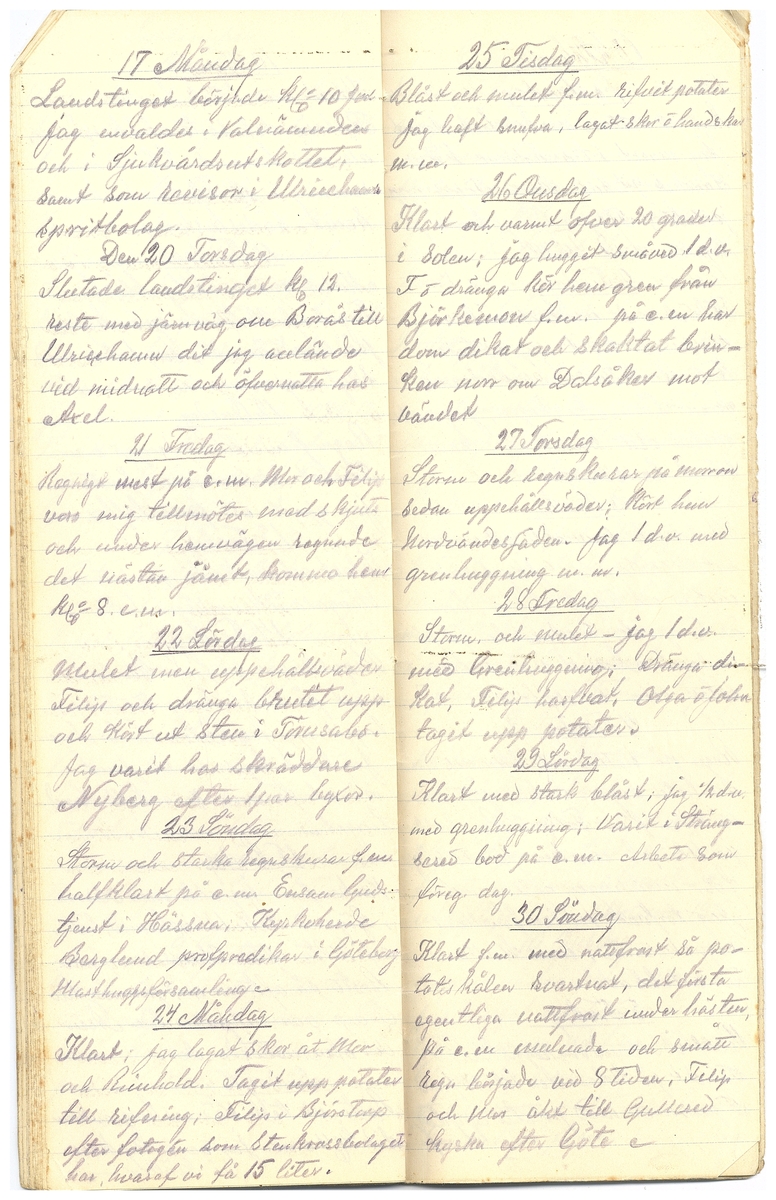 17 Måndag
Landstinget börjde kl 10 fm
jag invaldes i Valnämnden
och i Sjukvårdsutskottet,
samt som revisor i Ulricehamns
spritbolag.
Den 20 Torsdag
Slutade landstinget kl 12.
reste med järnväg om Borås till
Ulricehamn dit jag anlände
vid midnatt och öfvernatta hos
Axel.
21 Fredag
Regnigt mest på e.m. Mor och Filip
voro mig tillmötes med skjuts
och under hemvägen regnade
det nästan jämt, kommo hem
kl 8. e.m.
22 Lördag
Mulet men uppehållsväder
Filip och dränga brutit upp
och kört ut sten i
Jag varit hos skräddare
Nyberg efter 1 par byxor.
23 Söndag
Storm och starka regnskurar f.m.
halfklart på e.m. Ensam Guds-
tjenst i Hössna; Kyrkoherde
Berglund profpredikar i Göteborg
Masthuggsförsamling
24 Måndag
Klart; jag lagat skor åt Mor
och Reinhold. Tagit upp potater
till rifning; Filip i Björstorp
efter fotogén som Stenkrossbolaget
har, hvaraf vi få 15 liter.
25 Tisdag
Blåst och mulet f.m. rifvit potater
jag haft snufva, lagat skor ö handskar
m.m.
26 Onsdag
Klart och varmt öfver 20 grader
i solen; jag huggit småved 1 d.v.
F ö dränga kör hem gren från
Björkemon f.m. på e.m har
dom dikat och skaktat brin-
ken norr om Dalsåker mot
vändet
27 Torsdag
Storm och regnskurar på morron
sedan uppehållsväder; kört hem
Nordvändesjäden. Jag 1 d.v. med
grenhuggning m.m.
28 Fredag
Storm. och mulet - jag 1 d.v.
med Grenhuggning; Dränga di-
kat, Filip harfvat. Olga ö
tagit upp potater.
29 Lördag
Klart med stark blåst; jag 1/2 d.v.
med grenhuggning; Varit i Sträng-
sered bod på e.m. Arbete som
föreg. dag.
30 Söndag
Klart f.m. med nattfrost så po-
tatiskålen svartnat, det första
egentliga nattfrost under hösten,
på e.m mulnade och smått
regn började vid 8 tiden, Filip
och Mor åkt till Gullered
kyrka efter Göte